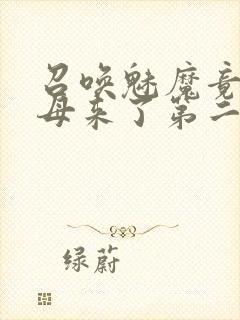 召唤魅魔竟
母来了第二
绿蔚